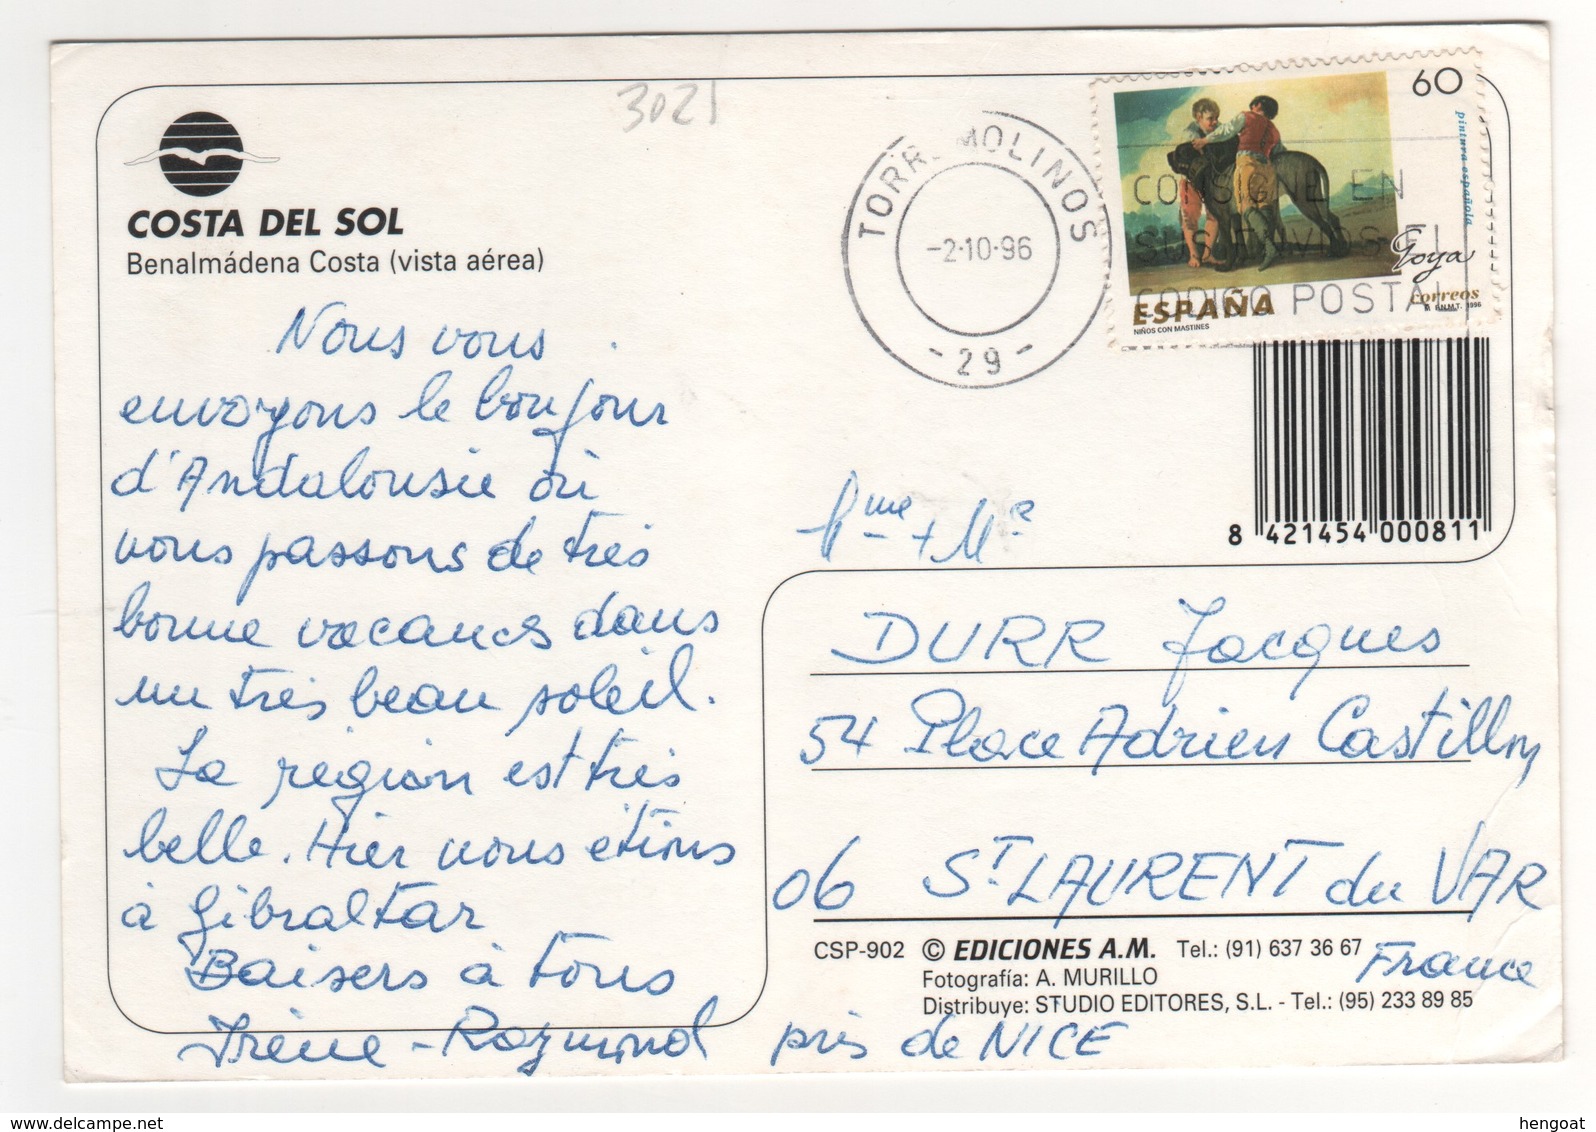 3021
COSTA DEL SOL
Benalmádena Costa (vista aérea)
Nous vous
envoyons le bonjour
d'Andalousie où
nous passons de très
bonne vacances dans
un très beau soleil.
La région est très
belle. Hier nous étions
à Gibraltar
Baisers à tous
Irène - Raymond
TORREMOLINOS
-2·10·96
- 29 -
CONSIGNE EN
SUS ENVIOS EL
CODIGO POSTAL
60
pintura española
Goya
correos
F.N.M.T. 1996
ESPAÑA
NIÑOS CON MASTINES
8 421454 000811
Mme + Mr
DURR Jacques
54 Place Adrien Castillon
06 ST LAURENT du VAR
France
près de NICE
CSP-902 © EDICIONES A.M. Tel.: (91) 637 36 67
Fotografía: A. MURILLO
Distribuye: STUDIO EDITORES, S.L. - Tel.: (95) 233 89 85
hengoat
delcampe.net